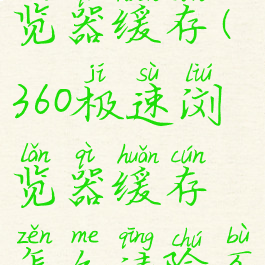 览器缓存(
jí sù liú
360极速浏
lǎn qì huǎn cún
览器缓存
zěn me qīng chú bù
怎么清除不